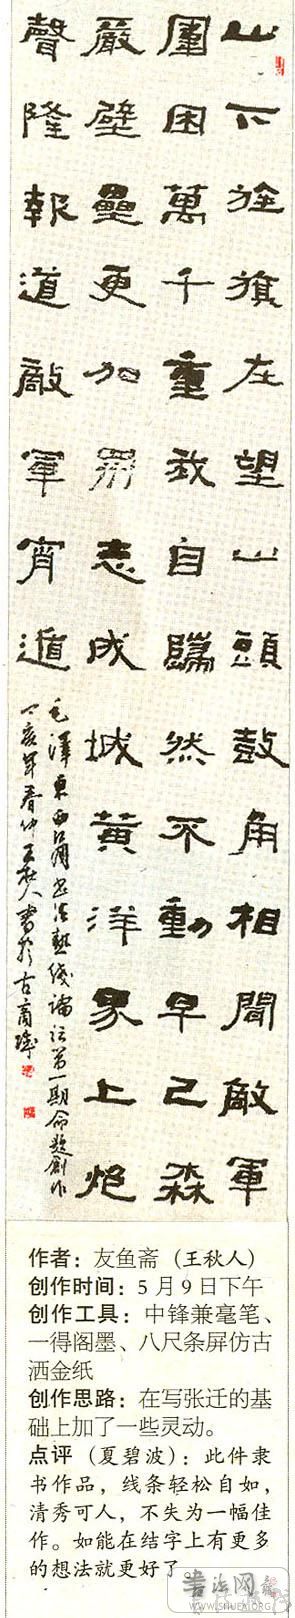 山下旌旗在望山頭鼓角相聞敵軍
圍困萬千重我自巋然不動早已森
嚴壁壘更加眾志成城黄洋界上炮
聲隆報道敵軍宵遁
毛澤東西江月書法熱綫論坛第一期命題創作
丁亥年春仲王秋人書於古商城
作者：友鱼斋（王秋人）
创作时间：5月9日下午
创作工具：中锋兼毫笔、
一得阁墨、八尺条屏仿古
洒金纸
创作思路：在写张迁的基
础上加了一些灵动。
点评（夏碧波）：此件隶
书作品，线条轻松自如，
清秀可人，不失为一幅佳
作。如能在结字上有更多
的想法就更好了。
书法网